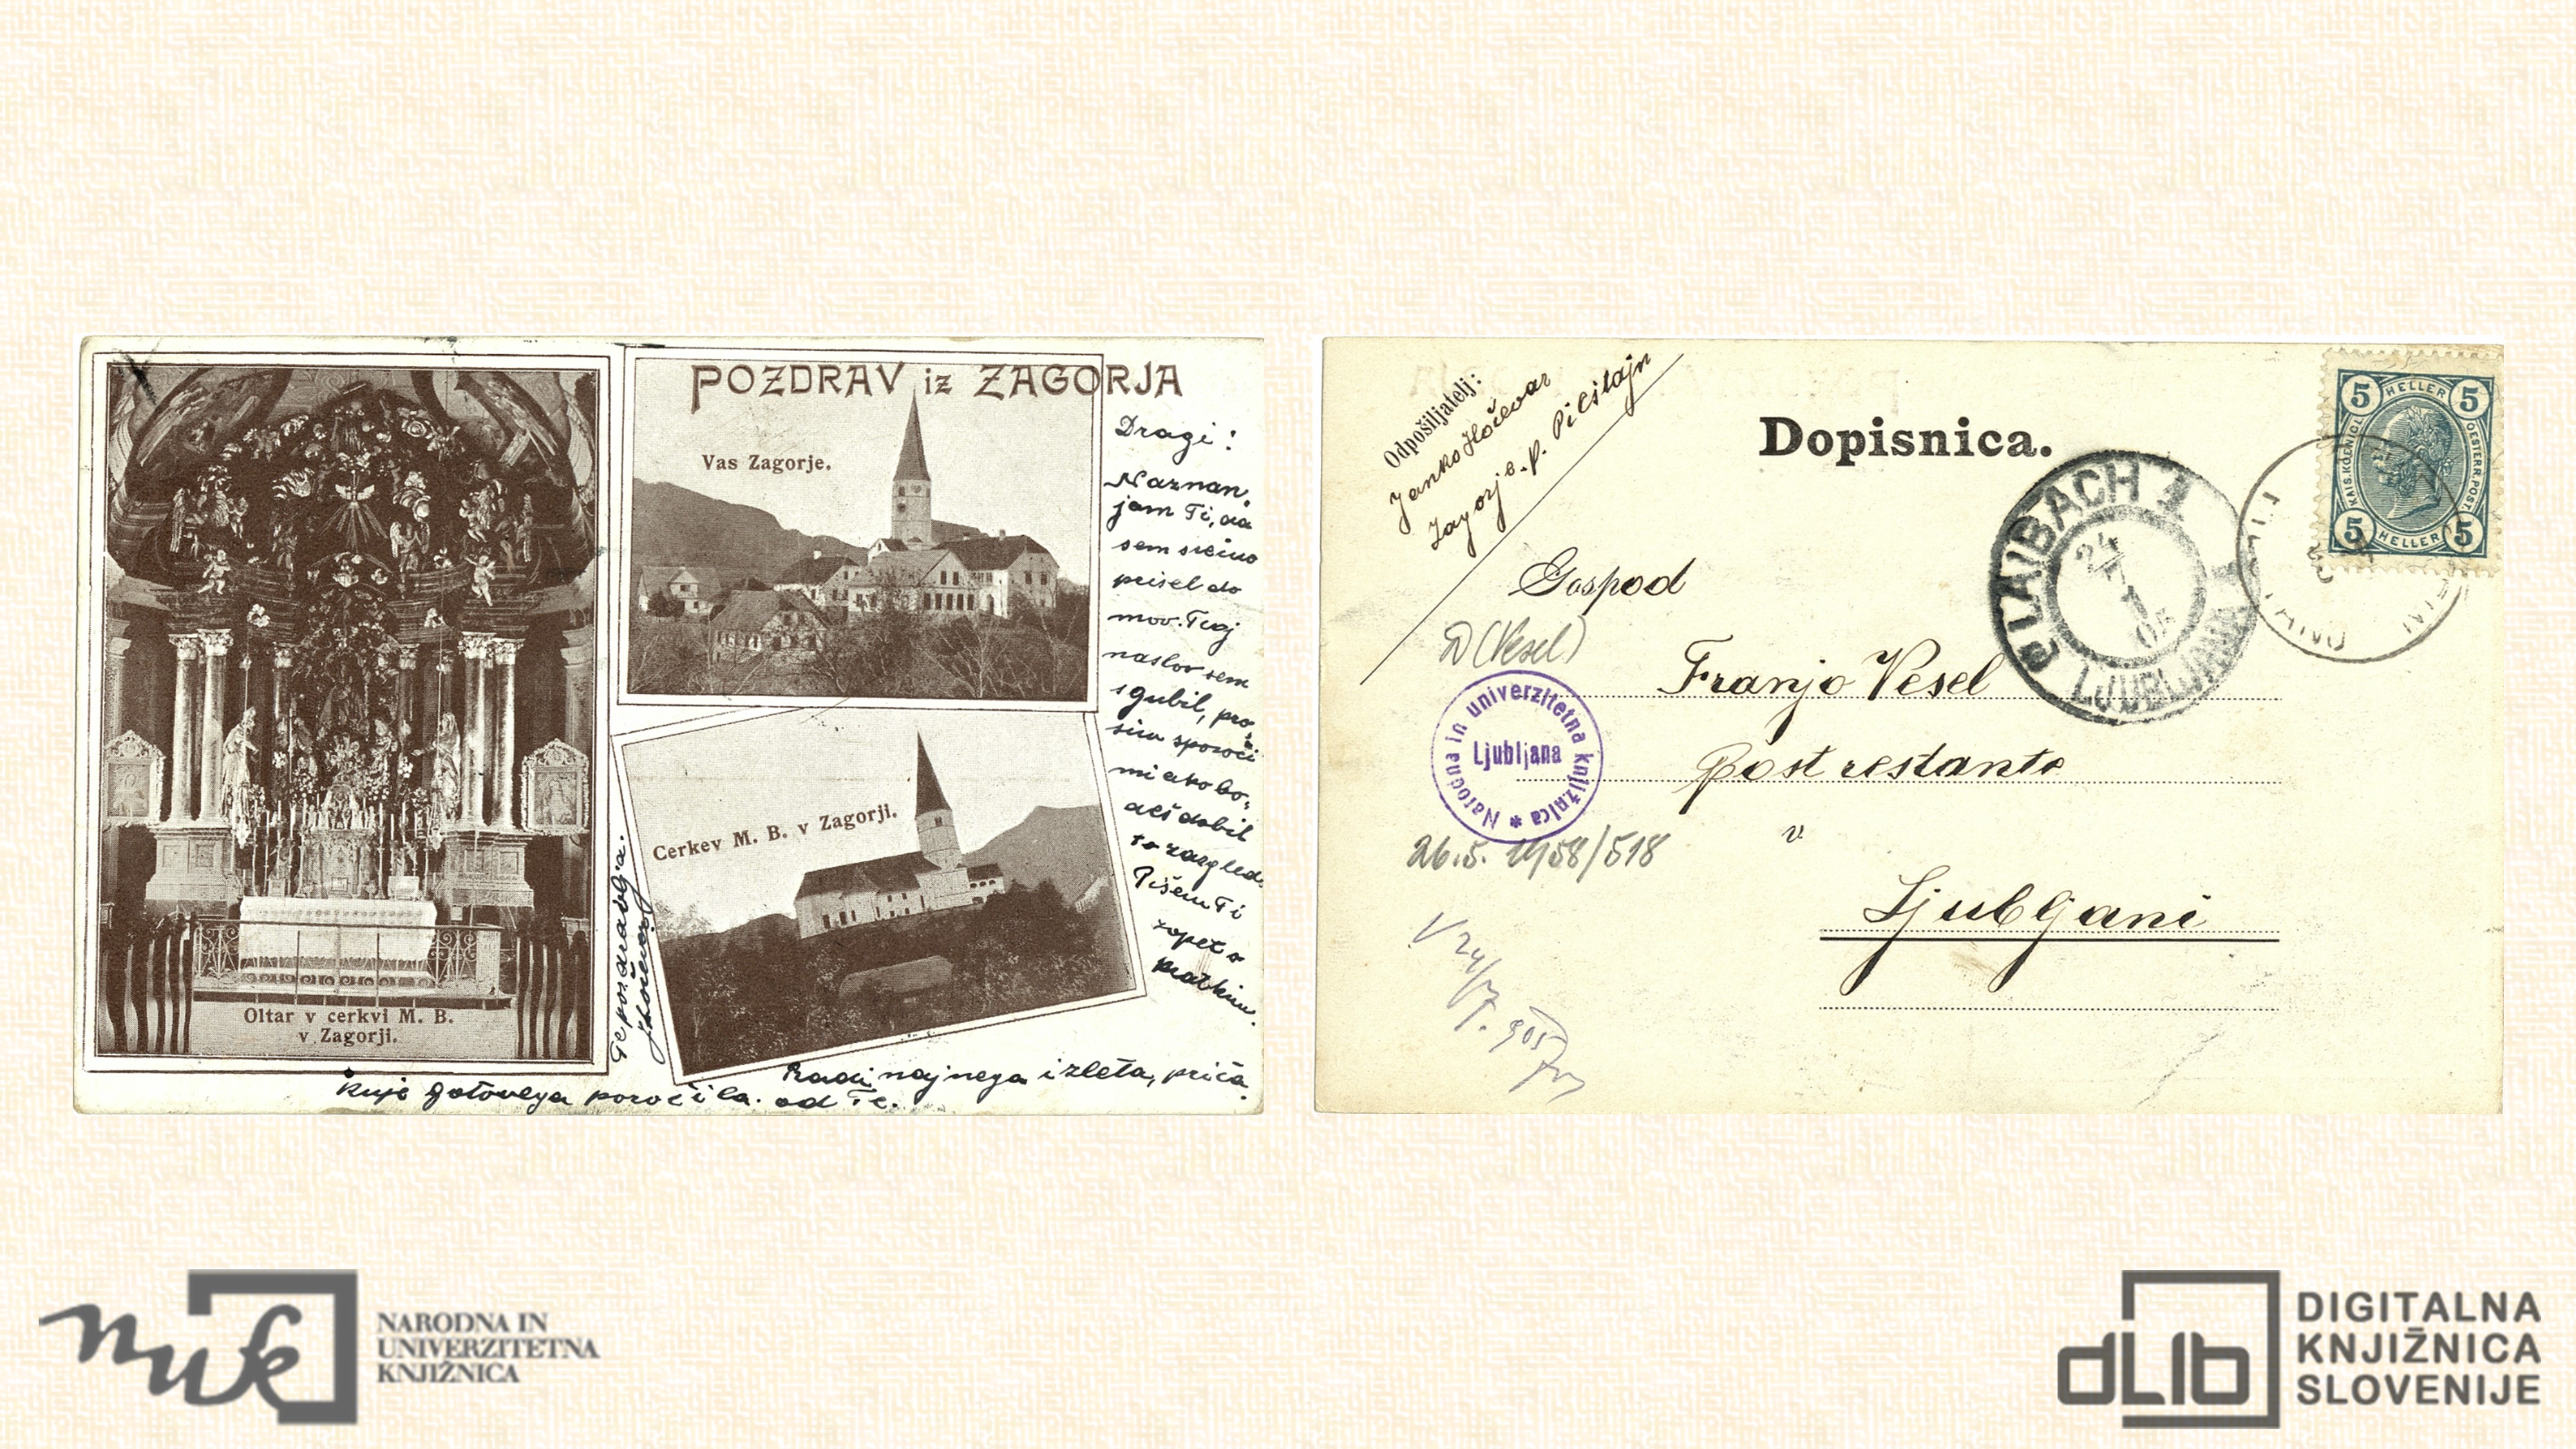 POZDRAV iz ZAGORJA
Vas Zagorje.
Cerkev M. B. v Zagorji.
Oltar v cerkvi M. B.
v Zagorji.
Dragi!
Naznan,
jam Ti, da
sem srečno
prišel do
mov. Tvoj
naslov sem
zgubil, pro,
sim sporoči
mi ako bo,
deš dobil
to razgled.
Pišem Ti
zopet o
kratkim.
Radi najnega izleta, priča,
kuje gotovega poročila. od Te.
Te pozdravlja
Odpošiljatelj:
Janko Hočevar
Zagorje. p. Pilštajn
Dopisnica.
5 HELLER 5
KAIS. KOENIGL. OESTERR. POST
5 HELLER 5
LAIBACH 1
LJUBLJANA 1
Gospod
D (Vesel)
Franjo Vesel
Post restante
v
Ljubljani
Narodna in univerzitetna knjižnica *
Ljubljana
26.5. 1958/518
V 24/7. 905
nuk
NARODNA IN
UNIVERZITETNA
KNJIŽNICA
dLib
DIGITALNA
KNJIŽNICA
SLOVENIJE